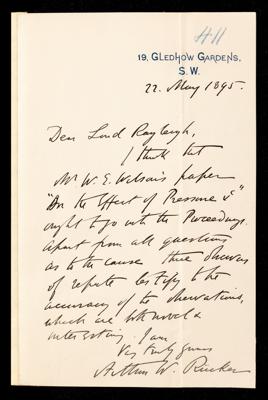 411
19, GLEDHOW GARDENS,
S. W.
22. May 1895.
Dear Lord Rayleigh,
I think that
Mr W. E. Wilson's paper
"On the Effect of Pressure &c"
ought to go into the Proceedings.
Apart from all questions
as to the cause three
of repute testify to the
accuracy of the observations,
which are both novel &
interesting. I am
Vy truly yours
Arthur W. Rucker